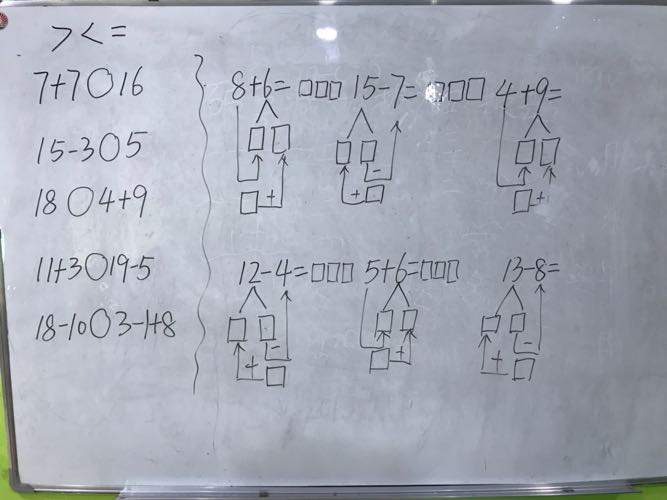 > < =
7+7○16
15-3○5
18○4+9
11+3○19-5
18-10○3-1+8
8+6=□□□ 15-7=□□□ 4+9=
□□ □□ □□
□+ +□- □+
12-4=□□□ 5+6=□□□ 13-8=
□□ □□ □□
+□- □+ +□-